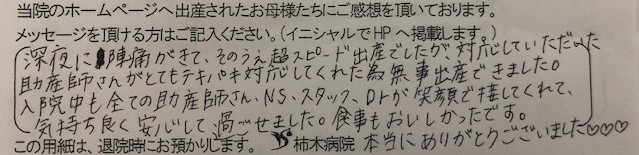 当院のホームページへ出産されたお母様たちにご感想を頂いております。
メッセージを頂ける方はご記入ください。(イニシャルでHPへ掲載します。)
深夜に陣痛がきて、そのうえ超スピード出産でしたが、対応していただいた
助産師さんがとてもテキパキ対応してくれた為無事出産できました。
入院中も全ての助産師さん、NS、スタッフ、Drが笑顔で接してくれて、
気持ち良く安心して、過ごせました。食事もおいしかったです。
この用紙は、退院時にお預かりします。 柿木病院 本当にありがとうございました♡♡♡